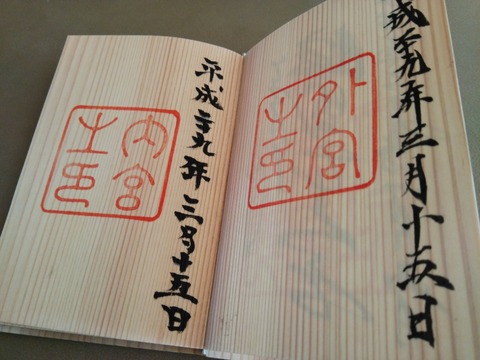 成二十九年三月十五日
外宮
之印
平成二十九年三月十五日
内宮
之印